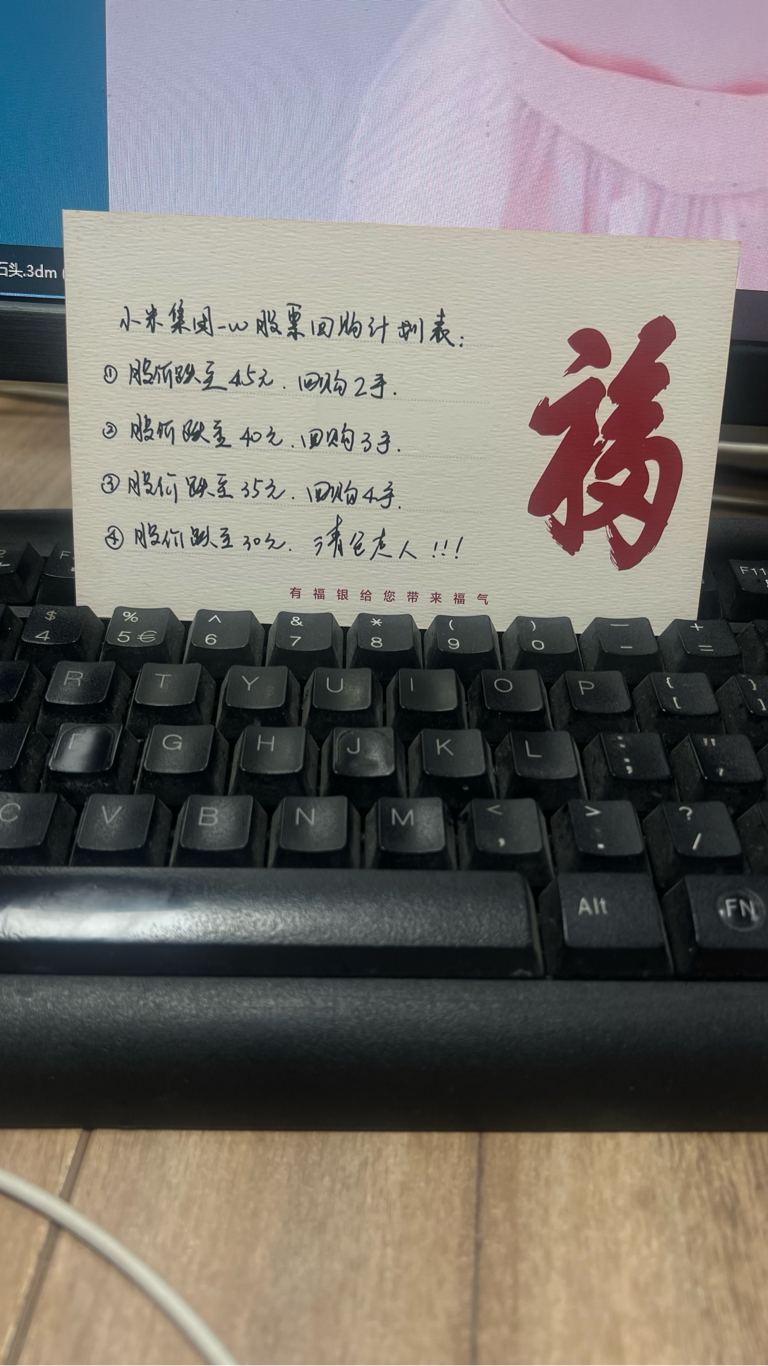 石头.3dm
小米集团-w股票回购计划表:
① 股价跌至45元.回购2手.
② 股价跌至40元.回购3手.
③ 股价跌至35元.回购4手.
④ 股价跌至30元.清仓走人!!!
福
有福银给您带来福气
F11
$ 4 % 5 € ^ 6 & 7 * 8 ( 9 ) 0 — - + =
R T Y U I O P { [ } ]
F G H J K L : ; " '
C V B N M < , > . ? /
Alt FN